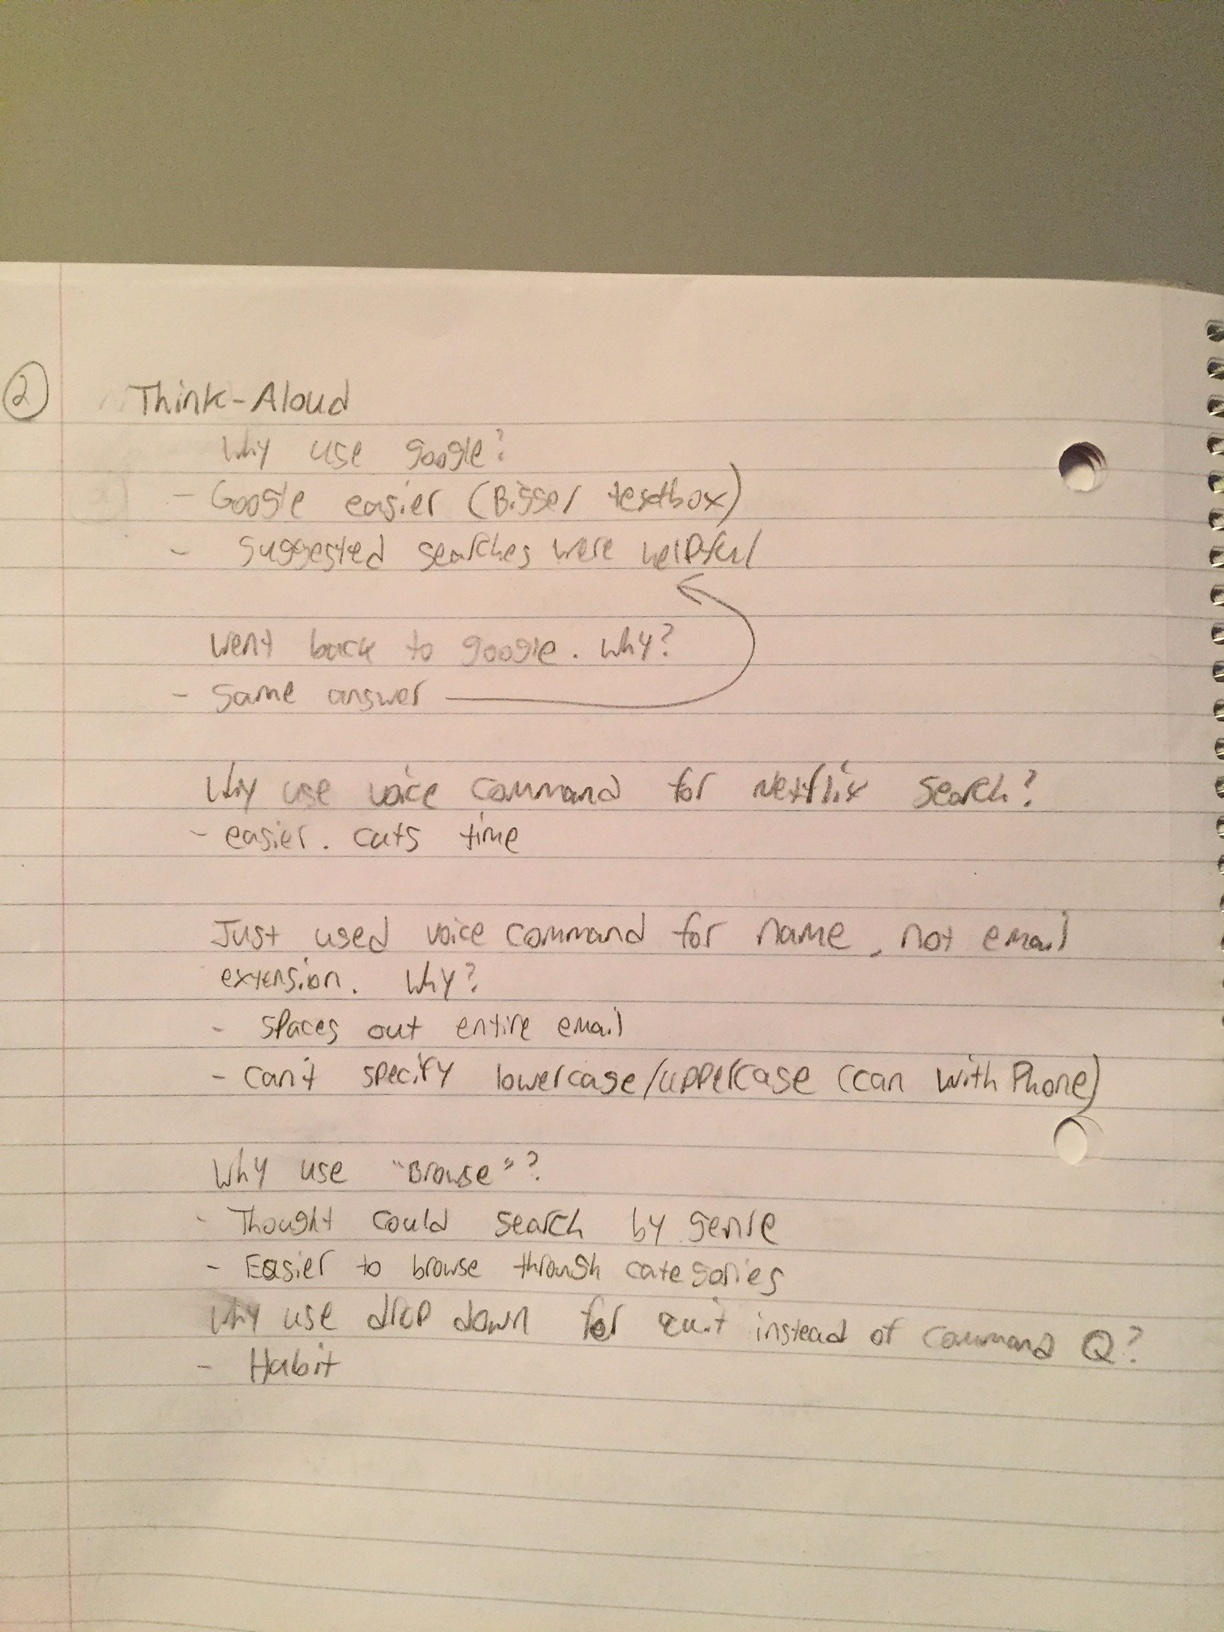 2
Think-Aloud
Why use google?
- Google easier (Bigger textbox)
- suggested searches were helpful
Went back to google. Why?
- same answer
Why use voice command for Netflix search?
- easier. cuts time
Just used voice command for name, not email
extension. Why?
- spaces out entire email
- can't specify lowercase/uppercase (can with Phone)
Why use "Browse"?
- Thought could search by genre
- Easier to browse through categories
Why use drop down for quit instead of command Q?
- Habit